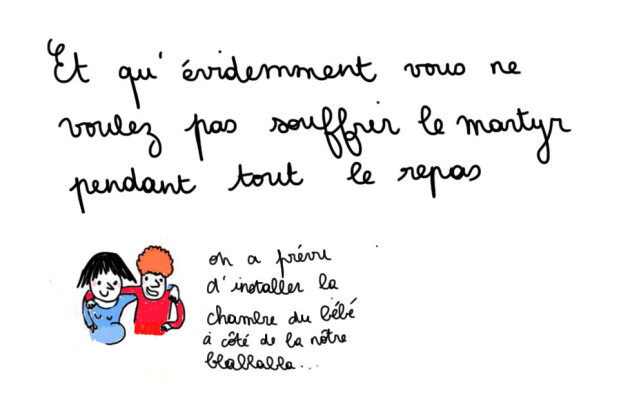 Et qu'évidemment vous ne
voulez pas souffrir le martyr
pendant tout le repas
on a prévu
d'installer la
chambre du bébé
à côté de la nôtre
blablabla...